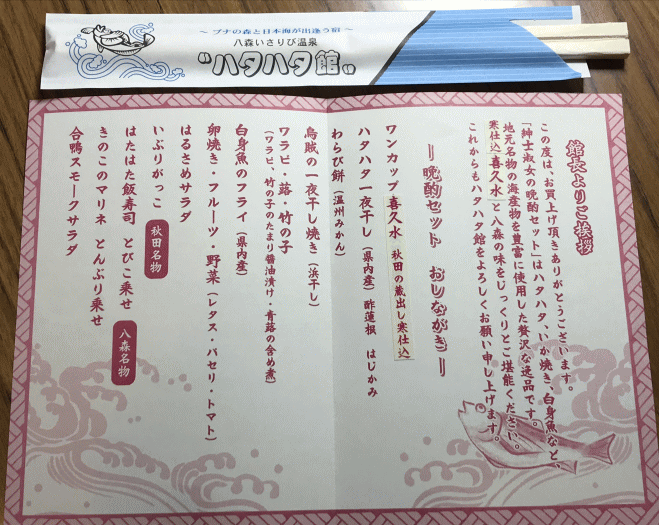 ～ ブナの森と日本海が出逢う宿 ～
八森いさりび温泉
“ハタハタ館„
館長よりご挨拶
この度は、お買上げ頂きありがとうございます。
「紳士淑女の晩酌セット」はハタハタ、いか焼き、白身魚など、
地元名物の海産物を豊富に使用した贅沢な逸品です。
寒仕込「喜久水」と八森の味をじっくりとご堪能ください。
これからもハタハタ館をよろしくお願い申し上げます。
ー 晩酌セット おしながき ー
ワンカップ 喜久水 秋田の蔵出し寒仕込
ハタハタ一夜干し（県内産） 酢蓮根 はじかみ
わらび餅（温州みかん）
烏賊の一夜干し焼き（浜干し）
ワラビ・蕗・竹の子
（ワラビ、竹の子のたまり醤油漬け・青蕗の含め煮）
白身魚のフライ（県内産）
卵焼き・フルーツ・野菜（レタス・パセリ・トマト）
はるさめサラダ
いぶりがっこ 秋田名物
はたはた飯寿司 とびこ乗せ 八森名物
きのこのマリネ とんぶり乗せ
合鴨スモークサラダ